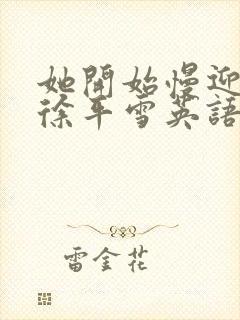 她開始慢迎
徐平雪英語
雷金花